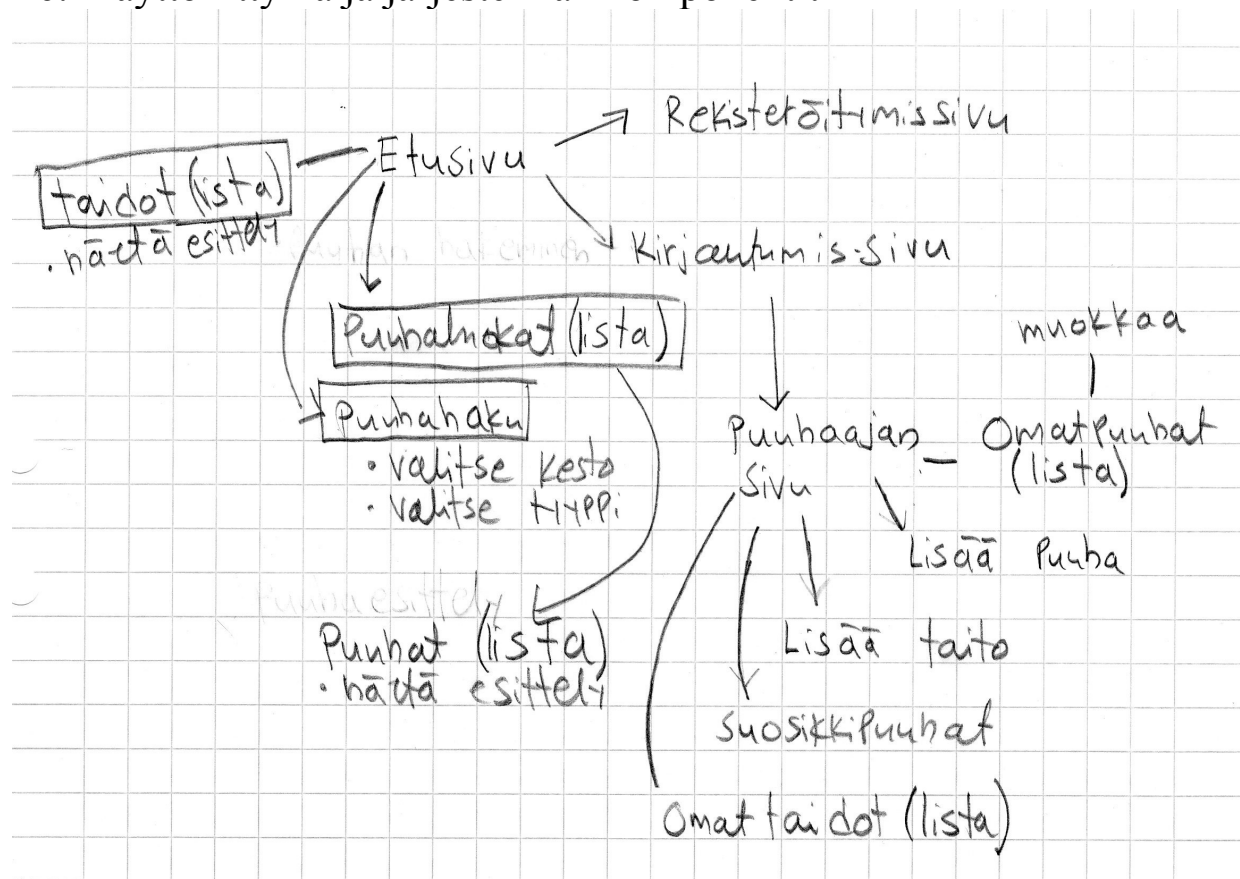 Rekisteröitymissivu
Etusivu
taidot (lista)
• näytä esittely
Kirjautumis-sivu
Puuhaluokat (lista)
muokkaa
Puuhahaku
• valitse kesto
• valitse tyyppi
Puuhaajan
sivu
Omat Puuhat
(lista)
Lisää Puuha
Puuhaesittely
Puuhat (lista)
• näytä esittely
Lisää taito
SuosikkiPuuhat
Omat taidot (lista)